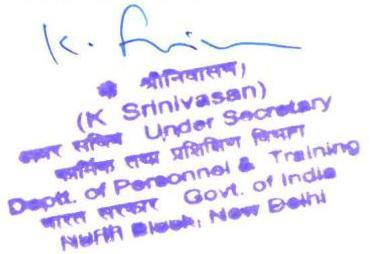 K. Srini
श्रीनिवासन)
(K Srinivasan)
अवर सचिव Under Secretary
कार्मिक तथा प्रशिक्षण विभाग
Deptt. of Personnel & Training
भारत सरकार Govt. of India
North Block, New Delhi